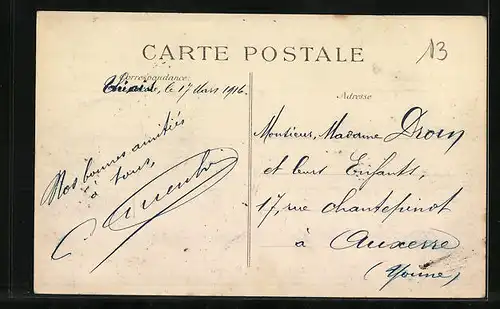 CARTE POSTALE
13
Correspondance
le 17 Mars 1916.
Adresse
Nos bonnes amitiés
à tous,
Monsieur, Madame
et leurs Enfants,
17, rue Chantepinot
à Auxerre
(Yonne)